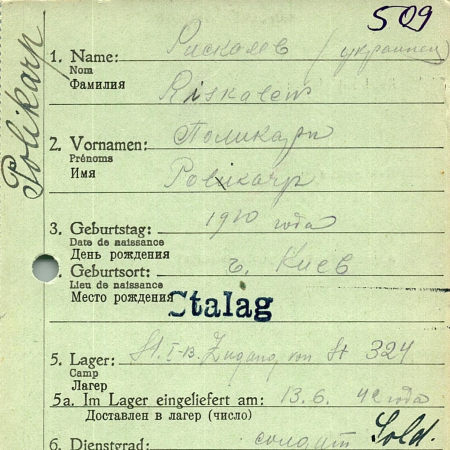 509
Polikarp
1. Name: Рискалев (украинец)
Nom
Фамилия Riskalew
2. Vornamen: Поликарп
Prénoms
Имя Polikarp
3. Geburtstag: 1910 года
Date de naissance
День рождения
4. Geburtsort: г. Киев
Lieu de naissance
Место рождения
Stalag
5. Lager: St. I-B. Zugang von St 324
Camp
Лагер
5a. Im Lager eingeliefert am: 13.6. 42 года
Доставлен в лагер (число)
6. Dienstgrad: солдат Sold.